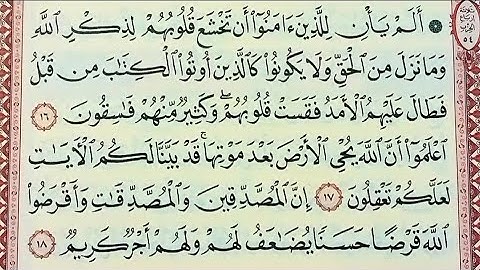 ۞ أَلَمْ يَأْنِ لِلَّذِينَ ءَامَنُوٓا۟ أَن تَخْشَعَ قُلُوبُهُمْ لِذِكْرِ ٱللَّهِ
وَمَا نَزَلَ مِنَ ٱلْحَقِّ وَلَا يَكُونُوا۟ كَٱلَّذِينَ أُوتُوا۟ ٱلْكِتَٰبَ مِن قَبْلُ
فَطَالَ عَلَيْهِمُ ٱلْأَمَدُ فَقَسَتْ قُلُوبُهُمْ ۖ وَكَثِيرٌ مِّنْهُمْ فَٰسِقُونَ ١٦
ٱعْلَمُوٓا۟ أَنَّ ٱللَّهَ يُحْىِ ٱلْأَرْضَ بَعْدَ مَوْتِهَا ۚ قَدْ بَيَّنَّا لَكُمُ ٱلْءَايَٰتِ
لَعَلَّكُمْ تَعْقِلُونَ ١٧ إِنَّ ٱلْمُصَّدِّقِينَ وَٱلْمُصَّدِّقَٰتِ وَأَقْرَضُوا۟
ٱللَّهَ قَرْضًا حَسَنًا يُضَٰعَفُ لَهُمْ وَلَهُمْ أَجْرٌ كَرِيمٌ ١٨